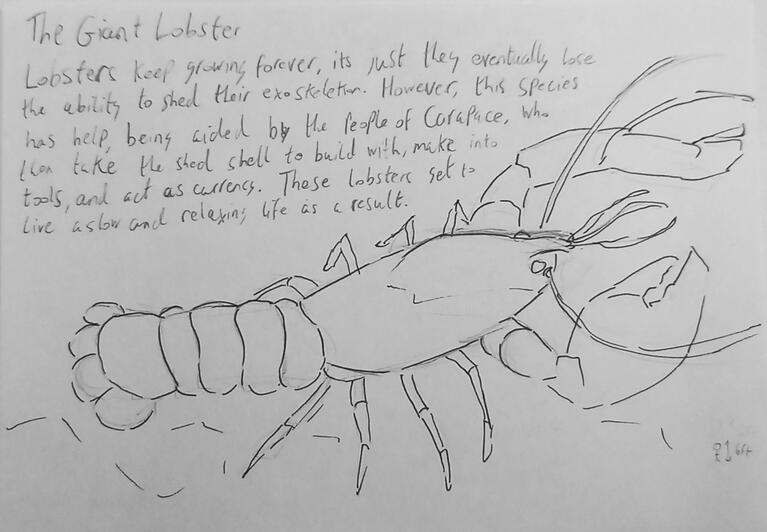 The Giant Lobster
Lobsters keep growing forever, its just they eventually lose
the ability to shed their exoskeleton. However, this species
has help, being aided by the People of Carapace, who
then take the shed shell to build with, make into
tools, and act as currency. These lobsters get to
live a slow and relaxing life as a result.
6ft